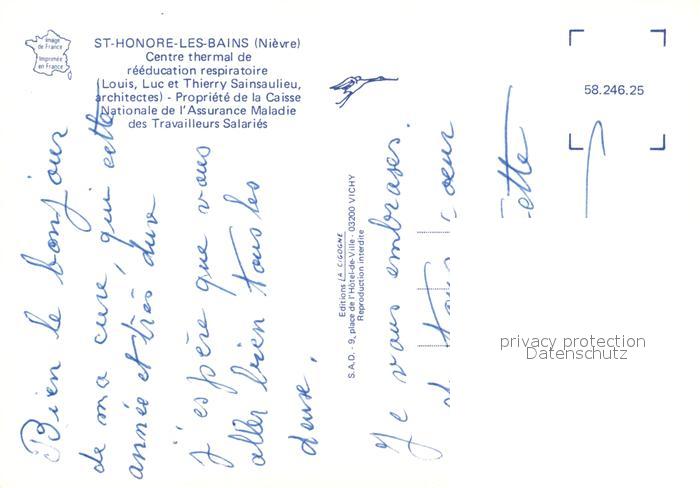 Image
de France
Imprimée
en France
ST-HONORE-LES-BAINS (Nièvre)
Centre thermal de
rééducation respiratoire
(Louis, Luc et Thierry Sainsaulieu,
architectes) - Propriété de la Caisse
Nationale de l'Assurance Maladie
des Travailleurs Salariés
58.246.25
Editions LA CIGOGNE
S.A.D. - 9, place de l'Hôtel-de-Ville - 03200 VICHY
Reproduction interdite
Bien le bonjour
de ma cure, qui cette
année et très dure
j'espère que vous
aller bien tous les
deux.
Je vous embrasse.
tous
ette
privacy protection
Datenschutz